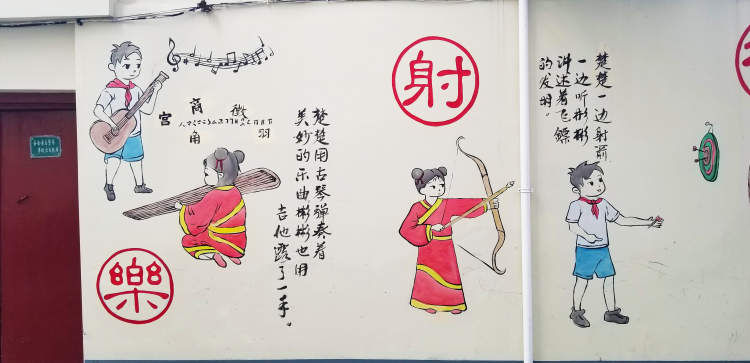 宫
商
角
徵
羽
樂
楚楚用古琴弹奏着
美妙的乐曲彬彬也用
吉他露了一手。
射
楚楚一边射箭
一边听彬彬
讲述着飞镖
的发明。